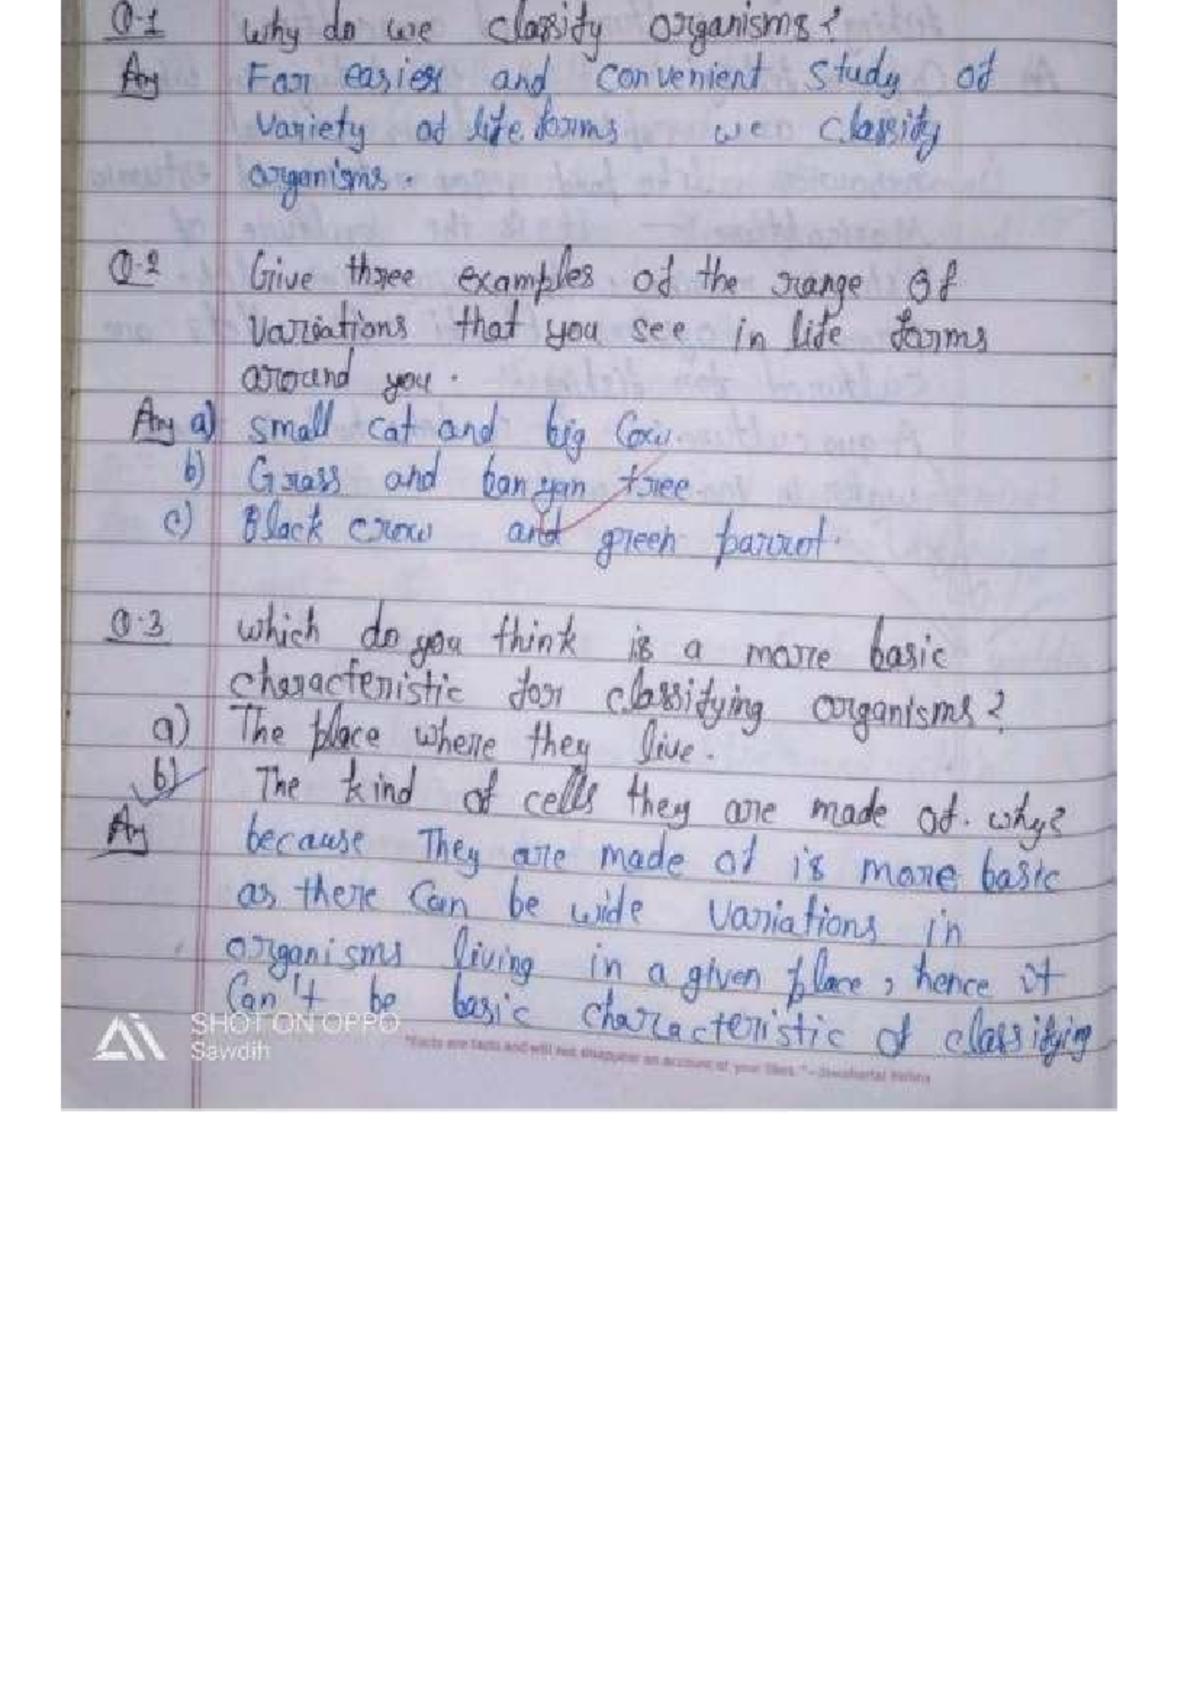 Q.1 why do we classify organisms?
Ans For easier and convenient study of
variety of life forms we classify
organisms.
Q.2 Give three examples of the range of
variations that you see in life forms
around you.
Ans a) small cat and big Cow
b) Grass and banyan tree
c) Black crow and green parrot.
Q.3 which do you think is a more basic
characteristic for classifying organisms?
a) The place where they live.
b) The kind of cells they are made of. why?
Ans because They are made of is more basic
as there Can be wide variations in
organisms living in a given place, hence it
Can't be basic characteristic of classifying
SHOT ON OPPO
Sawdih
"Facts are facts and will not disappear on account of your likes." - Jawaharlal Nehru